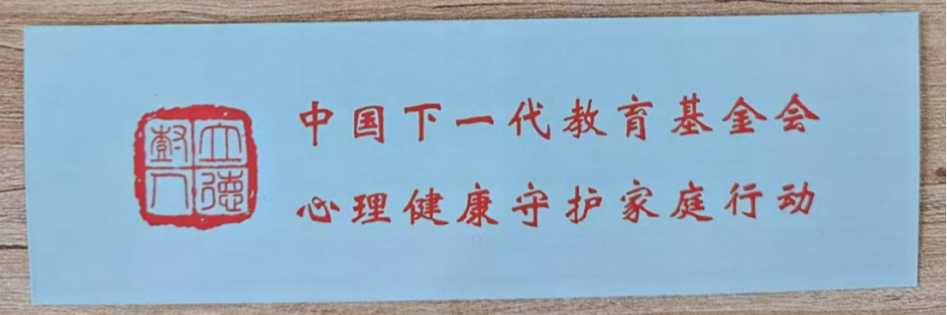 立德树人
中国下一代教育基金会
心理健康守护家庭行动